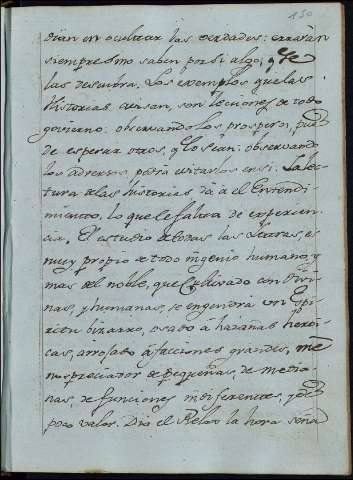 150
dian en ocultar las verdades: erraràn
siempre sino saben por si algo, q̃ se
las descubra. Los exemplos que las
Historias avisan, son lecciones de todo
govierno: observando los prosperos, pue
de esperar otros, q̃ lo sean: observando
los adversos, podrà evitarlos en si. La lec-
tura de las Historias dà à el Entendi-
miento, lo que le falta de experien-
cia. El estudio de todas las Letras, es
muy proprio de todo ingenio humano, y
mas del noble, que cultivado con Divi-
nas, y humanas, se engendra un Espi-
ritu bizarro, osado à hazañas heroi-
cas, arrojado à facciones grandes, me-
nospreciador de pequeñas, de media-
nas, de funciones indiferentes, y de
poco valor. Diò el Relox la hora seña